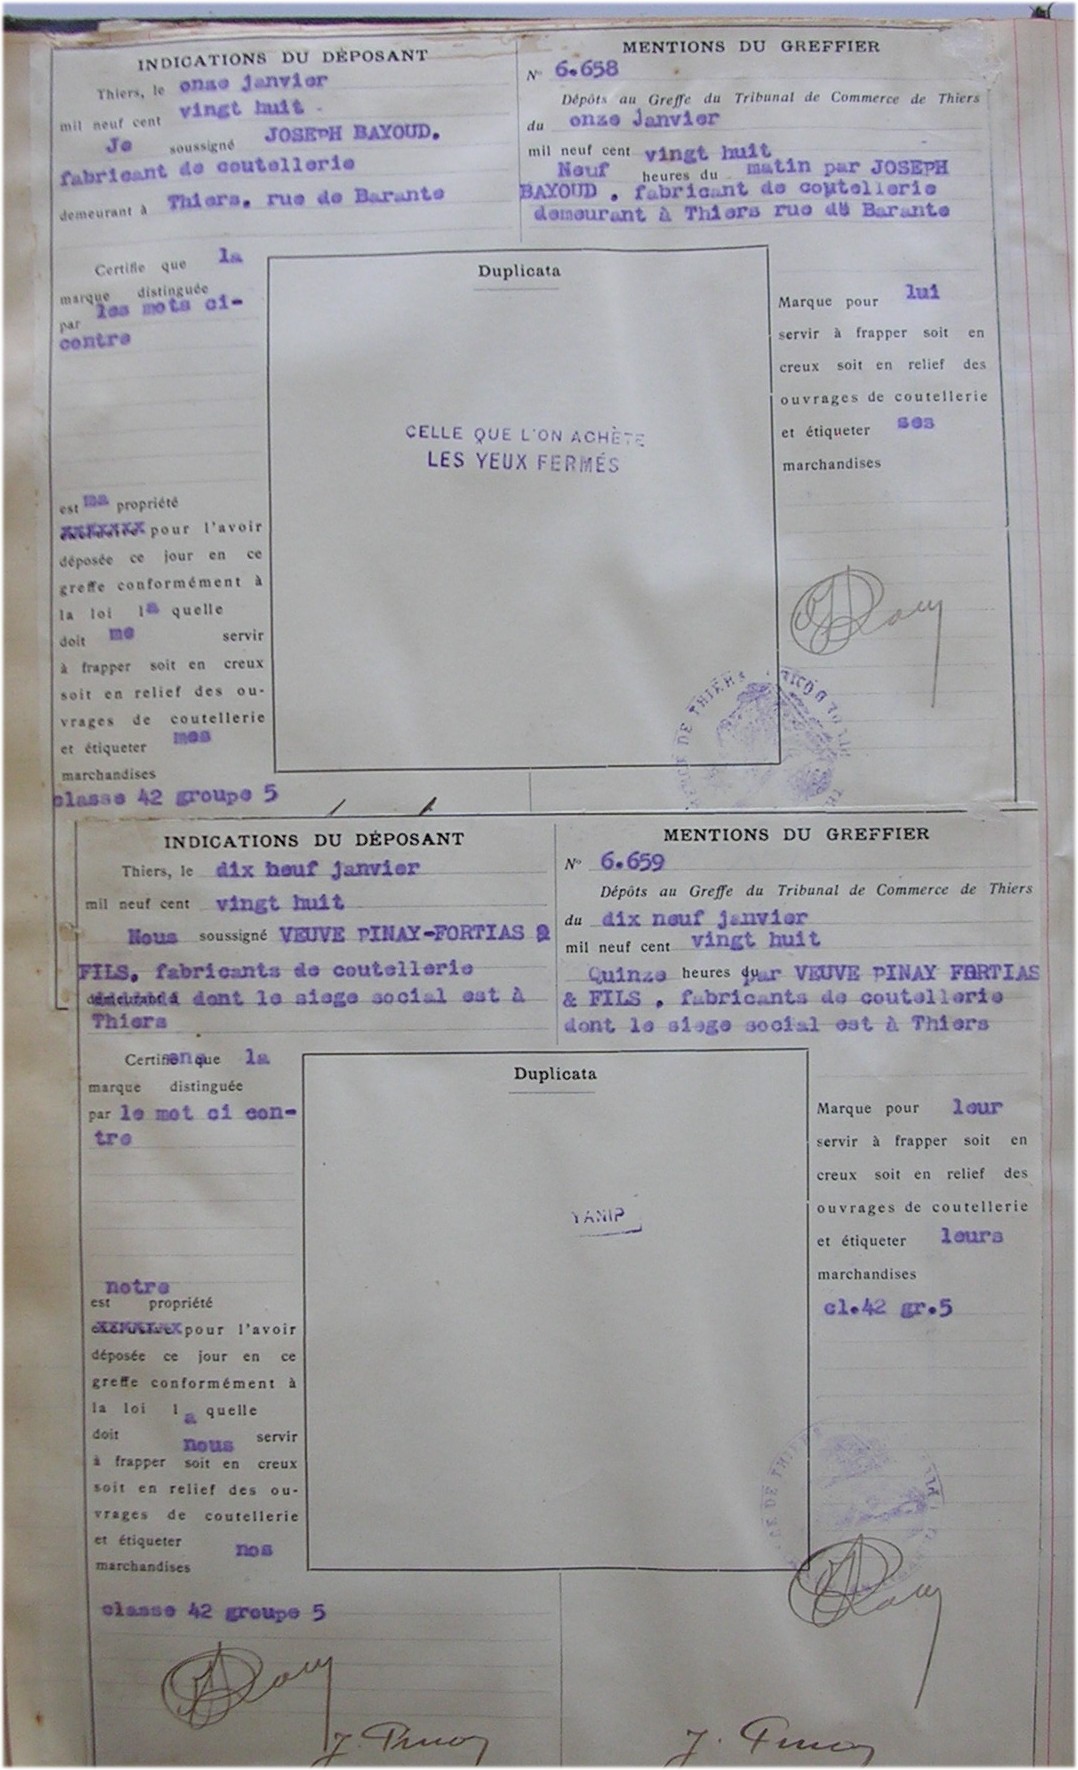 INDICATIONS DU DÉPOSANT
Thiers, le onze janvier
mil neuf cent vingt huit -
Je soussigné JOSEPH BAYOUD.
fabricant de coutellerie
demeurant à Thiers, rue de Barante
MENTIONS DU GREFFIER
N° 6.658
Dépôts au Greffe du Tribunal de Commerce de Thiers
du onze janvier
mil neuf cent vingt huit
Neuf heures du matin par JOSEPH
BAYOUD , fabricant de coutellerie
demeurant à Thiers rue de Barante
Certifie que la
marque distinguée
par les mots ci-
contre
est ma propriété
pour l'avoir
déposée ce jour en ce
greffe conformément à
la loi la quelle
doit me servir
à frapper soit en creux
soit en relief des ou-
vrages de coutellerie
et étiqueter mes
marchandises
classe 42 groupe 5
Duplicata
CELLE QUE L'ON ACHÈTE
LES YEUX FERMÉS
Marque pour lui
servir à frapper soit en
creux soit en relief des
ouvrages de coutellerie
et étiqueter ses
marchandises
DE THIERS
INDICATIONS DU DÉPOSANT
Thiers, le dix neuf janvier
mil neuf cent vingt huit
Nous soussigné VEUVE PINAY-FORTIAS &
FILS, fabricants de coutellerie
dont le siege social est à
Thiers
MENTIONS DU GREFFIER
N° 6.659
Dépôts au Greffe du Tribunal de Commerce de Thiers
du dix neuf janvier
mil neuf cent vingt huit
Quinze heures par VEUVE PINAY FORTIAS
& FILS , fabricants de coutellerie
dont le siege social est à Thiers
Certifienque la
marque distinguée
par le mot ci con-
tre
notre
est propriété
pour l'avoir
déposée ce jour en ce
greffe conformément à
la loi la quelle
doit nous servir
à frapper soit en creux
soit en relief des ou-
vrages de coutellerie
et étiqueter nos
marchandises
classe 42 groupe 5
Duplicata
YANIP
Marque pour leur
servir à frapper soit en
creux soit en relief des
ouvrages de coutellerie
et étiqueter leurs
marchandises
cl.42 gr.5
DE THIERS